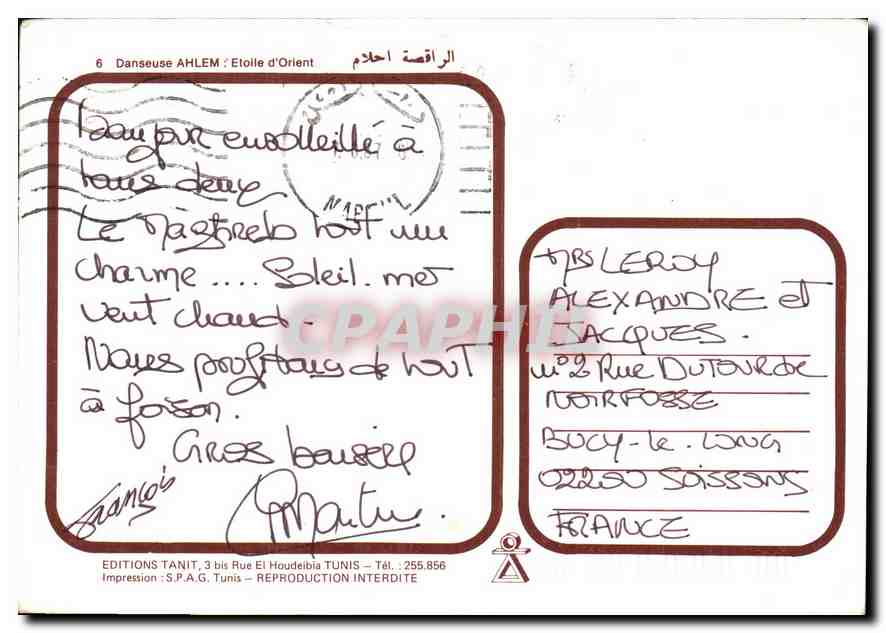 6 Danseuse AHLEM : Etoile d'Orient الراقصة احلام
Bonjour ensolleillé à
tous deux
Le Maghreb tout un
charme .... Soleil. mer
vent chaud.
Nous profitons de tout
à foison.
Gros baisers
François
Martine.
Mrs LEROY
ALEXANDRE et
JACQUES.
n° 2 Rue DUTOUR de
NOIRFOSSE
BUCY-le-LONG
02200 SOISSONS
FRANCE
EDITIONS TANIT, 3 bis Rue El Houdeibia TUNIS – Tél. : 255.856
Impression : S.P.A.G. Tunis – REPRODUCTION INTERDITE
CPAPHIL